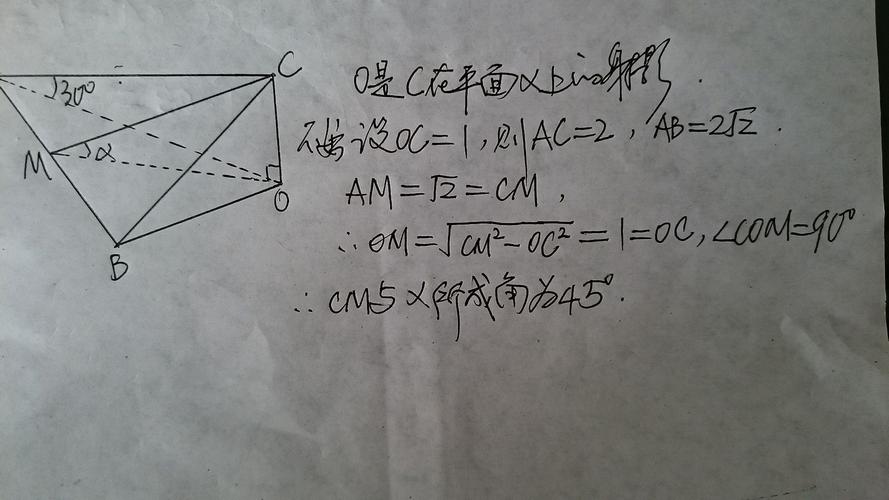 C
30°
M
α
O
B
O是C在平面α上的射影.
不妨设OC=1,则AC=2,AB=2√2.
AM=√2=CM,
∴OM=√CM²-OC²=1=OC,∠COM=90°
∴CM与α所成角为45°.